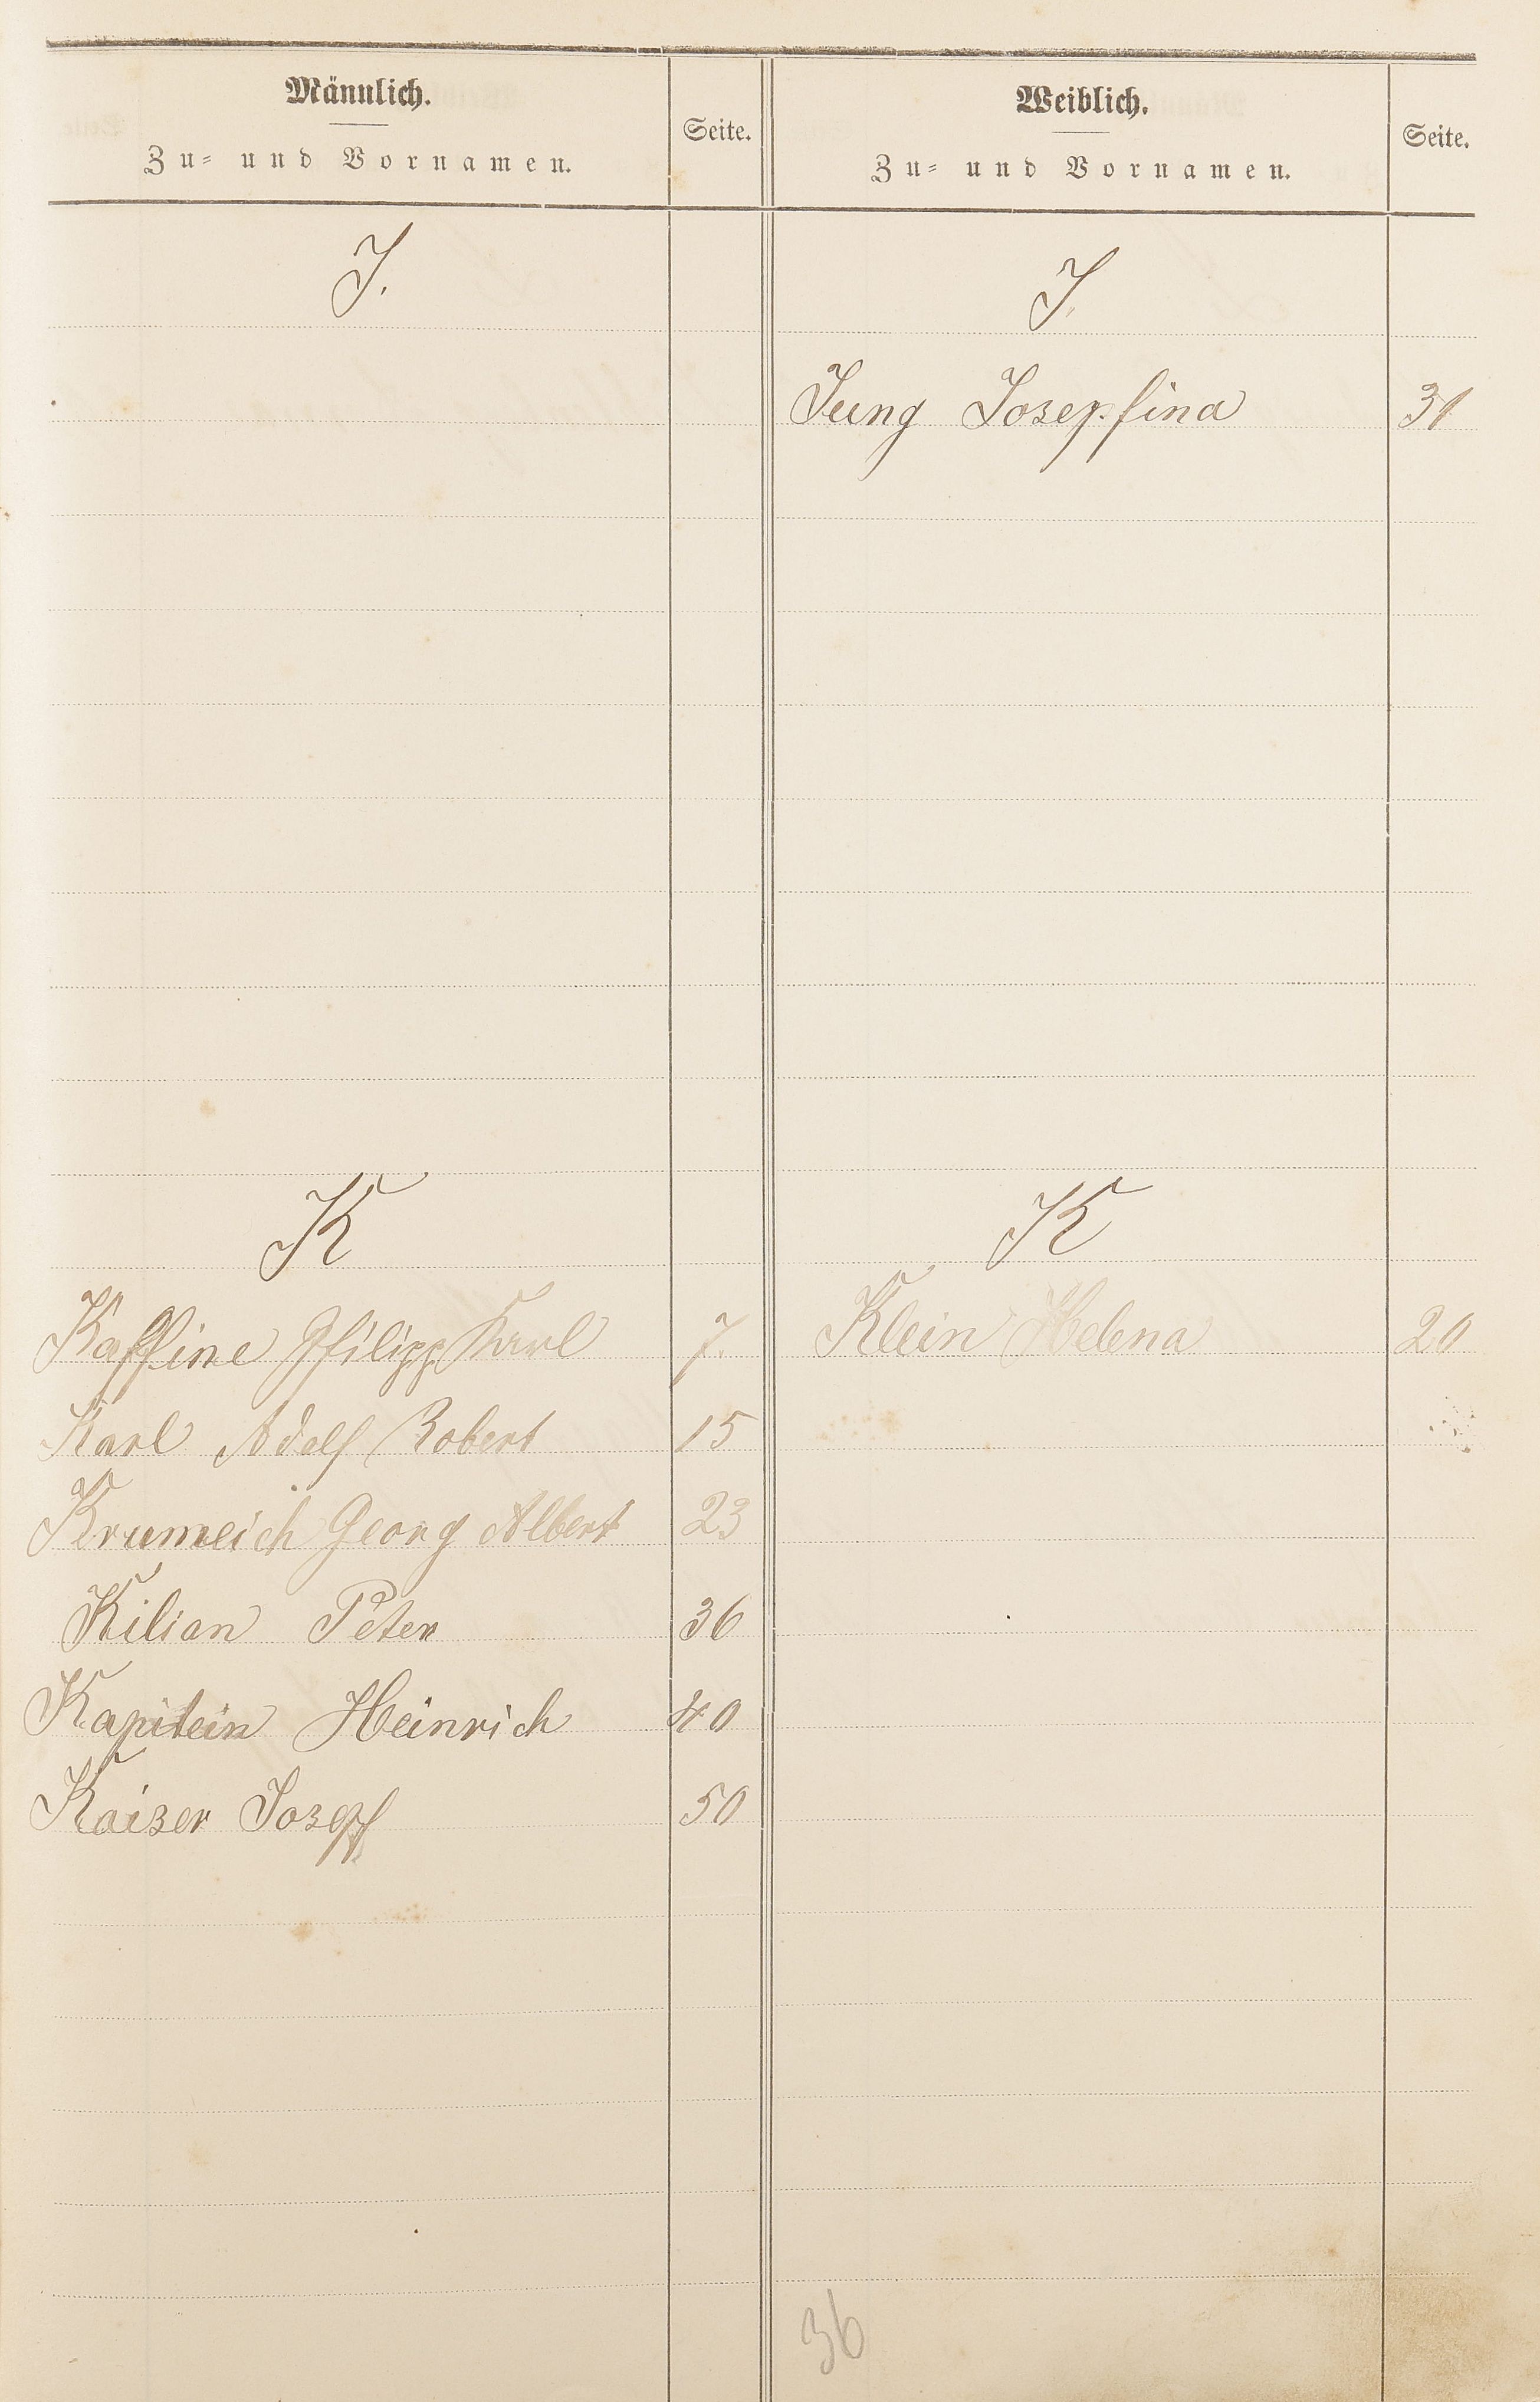 Männlich.
Zu- und Vornamen.
Seite.
Weiblich.
Zu- und Vornamen.
Seite.
J.
J.
Jung Josepfina 31
K
K
Kaffine Philipp Karl 7.
Klein Helena 20
Karl Adolf Robert 15
Krumeich Georg Albert 23
Kilian Peter 36
Kapitein Heinrich 40
Kaiser Josepf 50
36